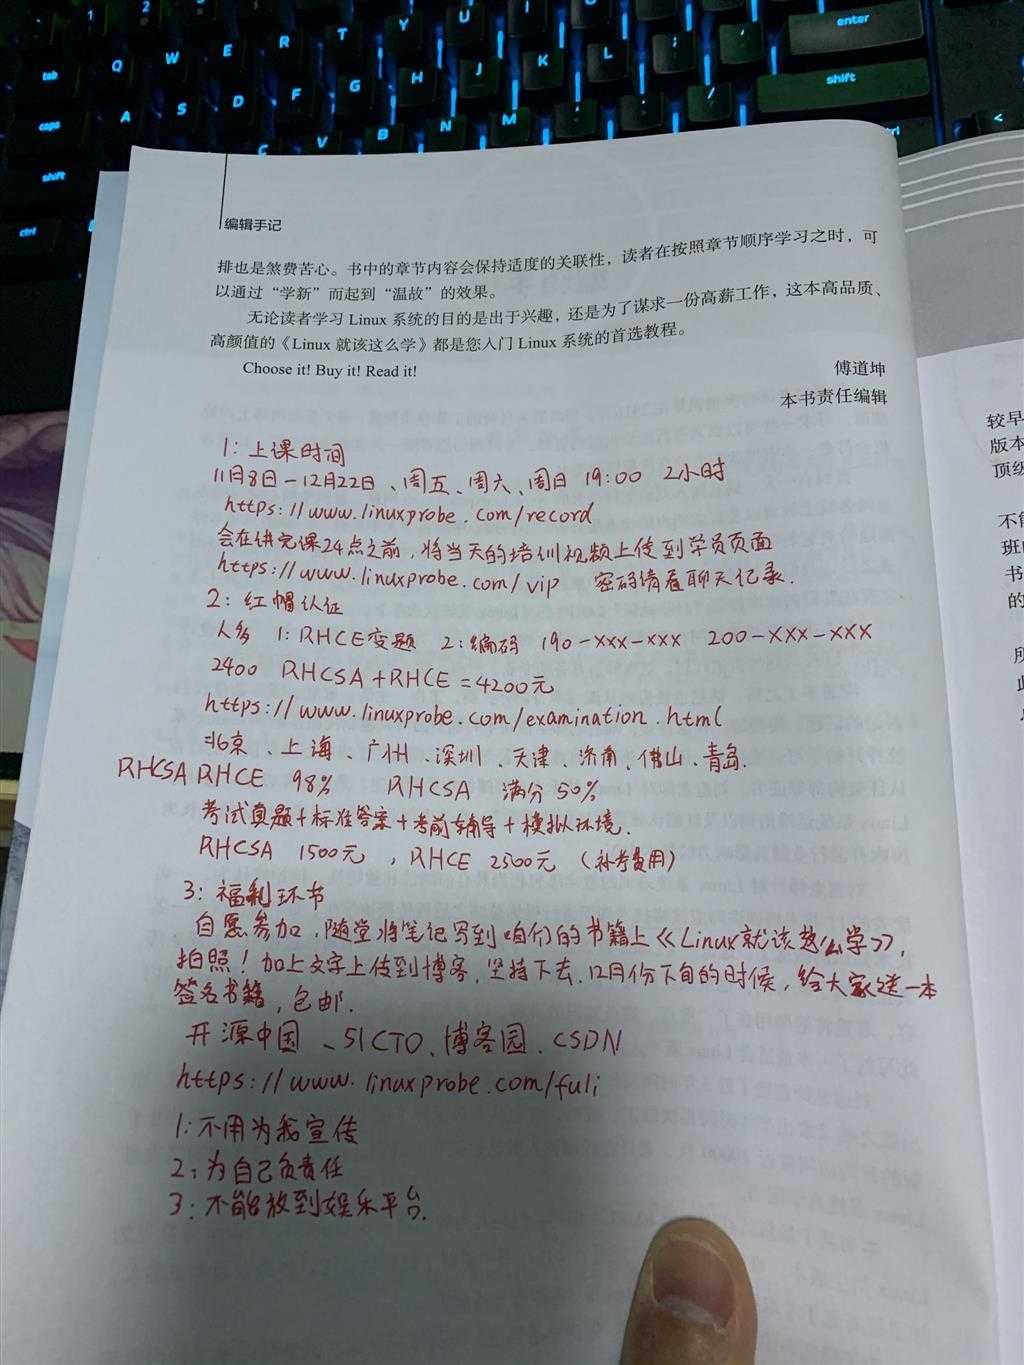 1 2 U I
tab Q W E R T Y O P enter
caps A S D F G H J K L shift
shift C V B N M <
ctrl
编辑手记
排也是煞费苦心。书中的章节内容会保持适度的关联性，读者在按照章节顺序学习之时，可
以通过“学新”而起到“温故”的效果。
无论读者学习 Linux 系统的目的是出于兴趣，还是为了谋求一份高薪工作，这本高品质、
高颜值的《Linux 就该这么学》都是您入门 Linux 系统的首选教程。
Choose it! Buy it! Read it!
傅道坤
本书责任编辑
1: 上课时间
11月8日-12月22日、周五、周六、周日 19:00 2小时
https://www.linuxprobe.com/record
会在讲完课24点之前，将当天的培训视频上传到学员页面
https://www.linuxprobe.com/vip 密码请看聊天记录.
2: 红帽认证
人多 1: RHCE变题 2: 编码 190-XXX-XXX 200-XXX-XXX
2400 RHCSA+RHCE=4200元
https://www.linuxprobe.com/examination.html
北京、上海、广州、深圳、天津、济南、佛山、青岛.
RHCSA RHCE 98% RHCSA 满分 50%
考试真题+标准答案+考前辅导+模拟环境.
RHCSA 1500元，RHCE 2500元（补考费用）
3: 福利环节
自愿参加，随堂将笔记写到咱们的书籍上《Linux就该怎么学》，
拍照！加上文字上传到博客，坚持下去，12月份下旬的时候，给大家送一本
签名书籍，包邮.
开源中国、51CTO、博客园、CSDN
https://www.linuxprobe.com/fuli
1: 不用为我宣传
2: 为自己负责任
3: 不能放到娱乐平台.
较早
版本
顶级
不能
班
书
的
所